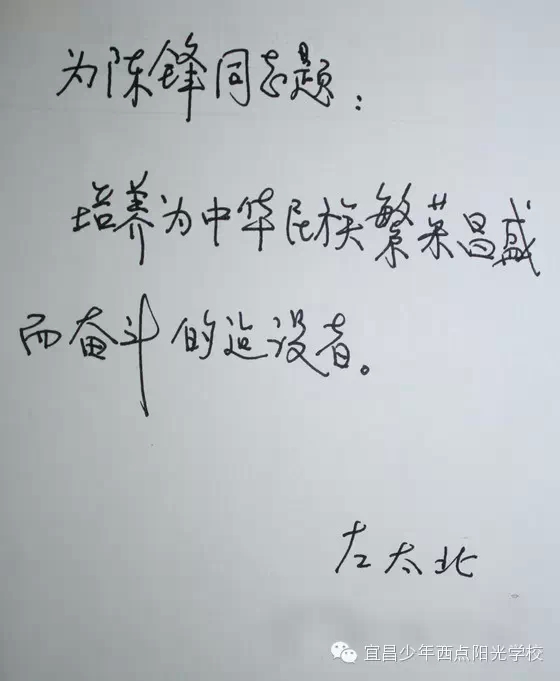 为陈锋同志题：
培养为中华民族繁荣昌盛
而奋斗的建设者。
左太北
宜昌少年西点阳光学校